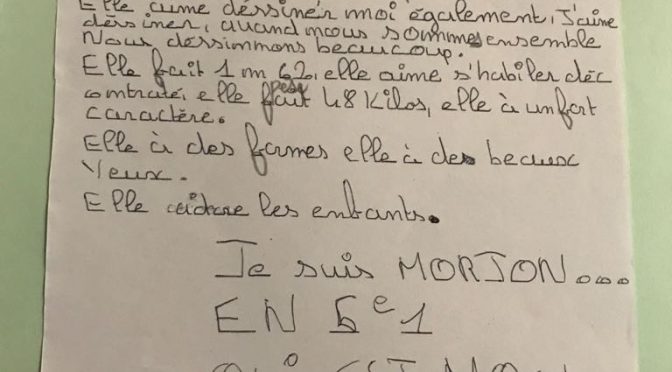 Elle aime déssiner moi également, J'aime
déssiner, quand nous sommes ensemble
Nous déssimmons beaucoup.
Elle fait 1 m 62, elle aime s'habiler déc
ontracté, elle pese 48 Kilos, elle à un fort
caractère.
Elle à des formes elle à des beaux
Yeux.
Elle adore les enfants.
Je suis MORJON...
EN 5e1